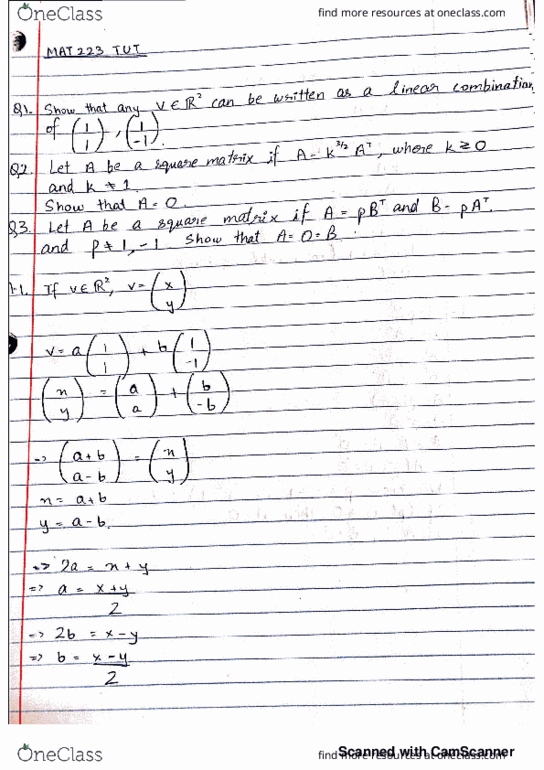 OneClass
find more resources at oneclass.com
MAT223 TUT
Q1. Show that any v ∈ ℝ² can be written as a linear combination
of (1 1), (1 -1).
Q2. Let A be a square matrix if A = k^3/2 Aᵀ, where k ≥ 0
and k ≠ 1.
Show that A = 0.
Q3. Let A be a square matrix if A = pBᵀ and B = pAᵀ.
and p ≠ 1, -1 Show that A = 0 = B.
1. If v ∈ ℝ², v = (x y)
v = a (1 1) + b (1 -1)
(x y) = (a a) + (b -b)
=> (a+b a-b) = (x y)
x = a+b
y = a-b.
=> 2a = x+y
=> a = x+y
2
=> 2b = x-y
=> b = x-y
2
Scanned with CamScanner
OneClass
find more resources at oneclass.com